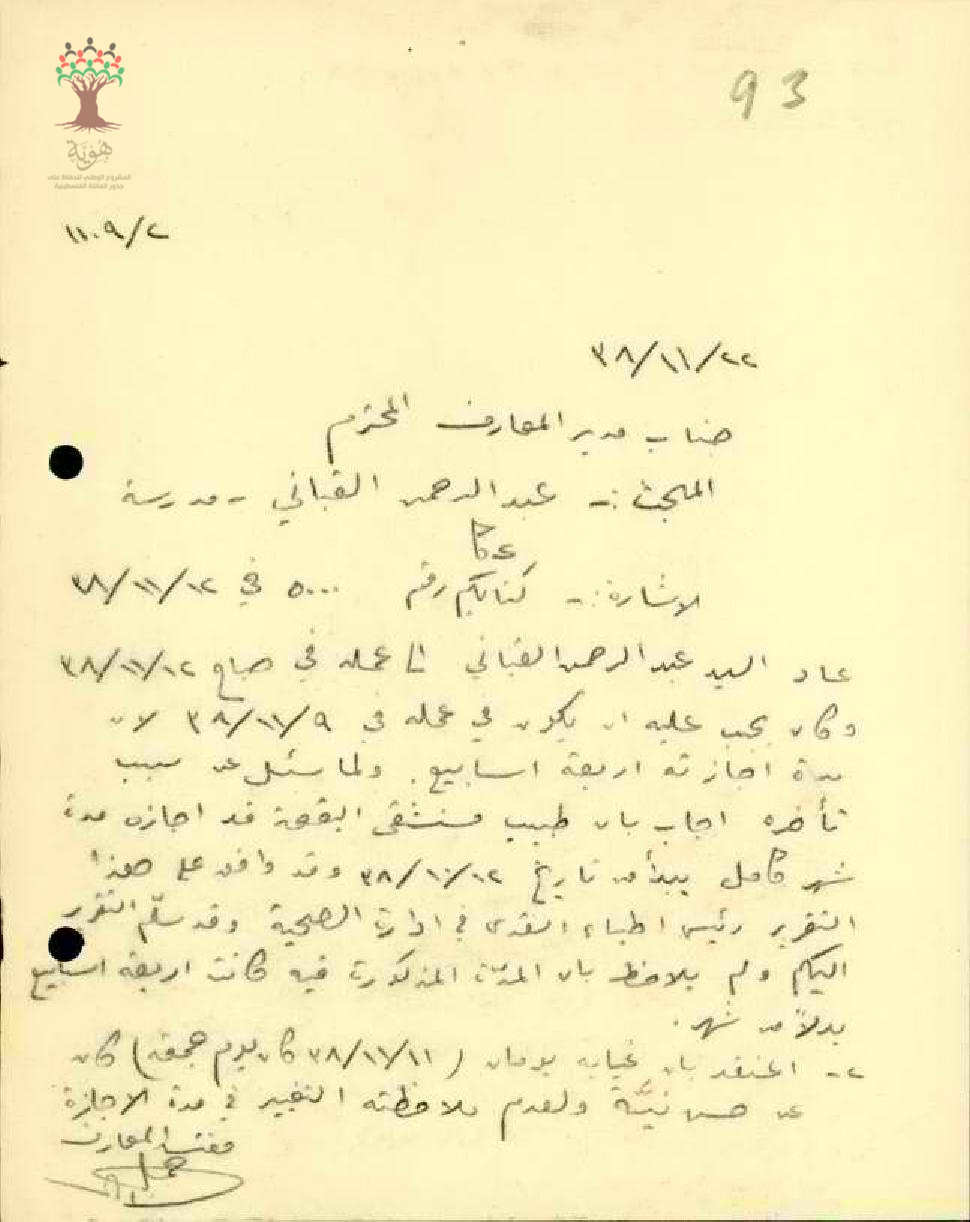 93
هوية
المشروع الوطني للحفاظ على
جذور العائلة الفلسطينية
١١٠٩/٢
٣٨/١١/٢٢
جناب مدير المعارف المحترم
المبحث :- عبد الرحمن القباني - مدرسة
عكا
الاشارة :- كتابكم رقم ٥٠٠٠ في ٣٨/١١/١٢
عاد السيد عبد الرحمن القباني الى عمله في صباح ٣٨/١١/١٢
وكان يجب عليه ان يكون في عمله في ٣٨/١١/٩ لان
مدة اجازته اربعة اسابيع. ولما سئل عن سبب
تأخره اجاب بان طبيب مستشفى البقعة قد اجازه مدة
شهر كامل يبدأ من تاريخ ٣٨/١٠/١٢ وقد وافق على هذا
التقرير رئيس اطباء القدس في ادارة الصحية وقد سلّم التقرير
اليكم ولم يلاحظ بان المدّة المذكورة فيه كانت اربعة اسابيع
بدلاً من شهر.
٢- اعتقد بان غيابه يومان (٣٨/١١/١١ كان يوم جمعة) كان
عن حسن نيّة ولعدم ملاحظته التغيير في مدة الاجازة
مفتش المعارف